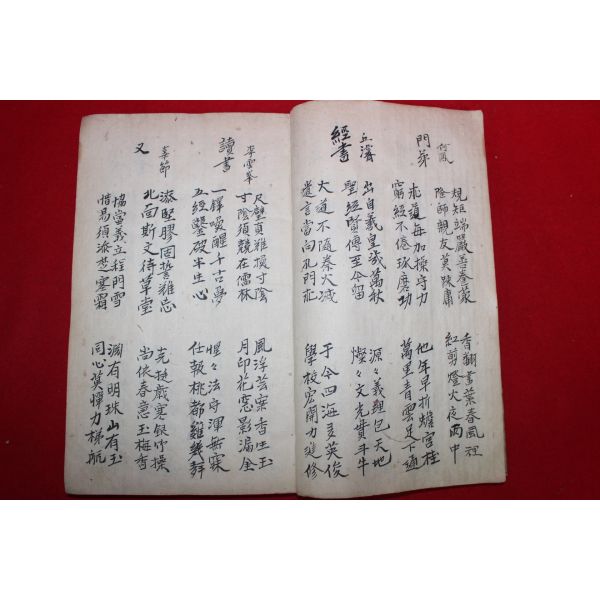 規矩端嚴善養蒙 香翻書葉春風裡
何鳳 隆師親友莫踈庸 紅剪燈火夜雨中
門弟 求道每加操守力 他年早折蟾宮桂
窮經不倦琢磨功 萬里青雲足下通
出自羲皇歲萬秋 源々義理包天地
丘濬 聖經賢傳至今留 燦々文光貫斗牛
經書 大道不隨秦火滅 于今四海多英俊
遺言當向孔門 學校宏開力進修
尺璧頁難換寸陰 風浮芸案香生玉
李雲 寸陰須競在儒林 月印花窓影漏金
讀書 一鐸喚醒千古夢 惺々法守渾無寐
五經鑿破半生心 任報桃都雞幾
添堅膠固誓難忘 歲寒猶
節 北面斯文待草堂 尚依春意玉梅香
又 惱當義立程門雪 淵有明珠山有玉
惜易須添楚寒霜 同心莫憚力梯航